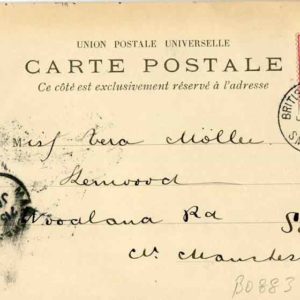 UNION POSTALE UNIVERSELLE
CARTE POSTALE
Ce côté est exclusivement réservé à l'adresse
BRITIS
Miss Vera Möller
Kernwood
Woodlana Rd
Nr Manches
B0883